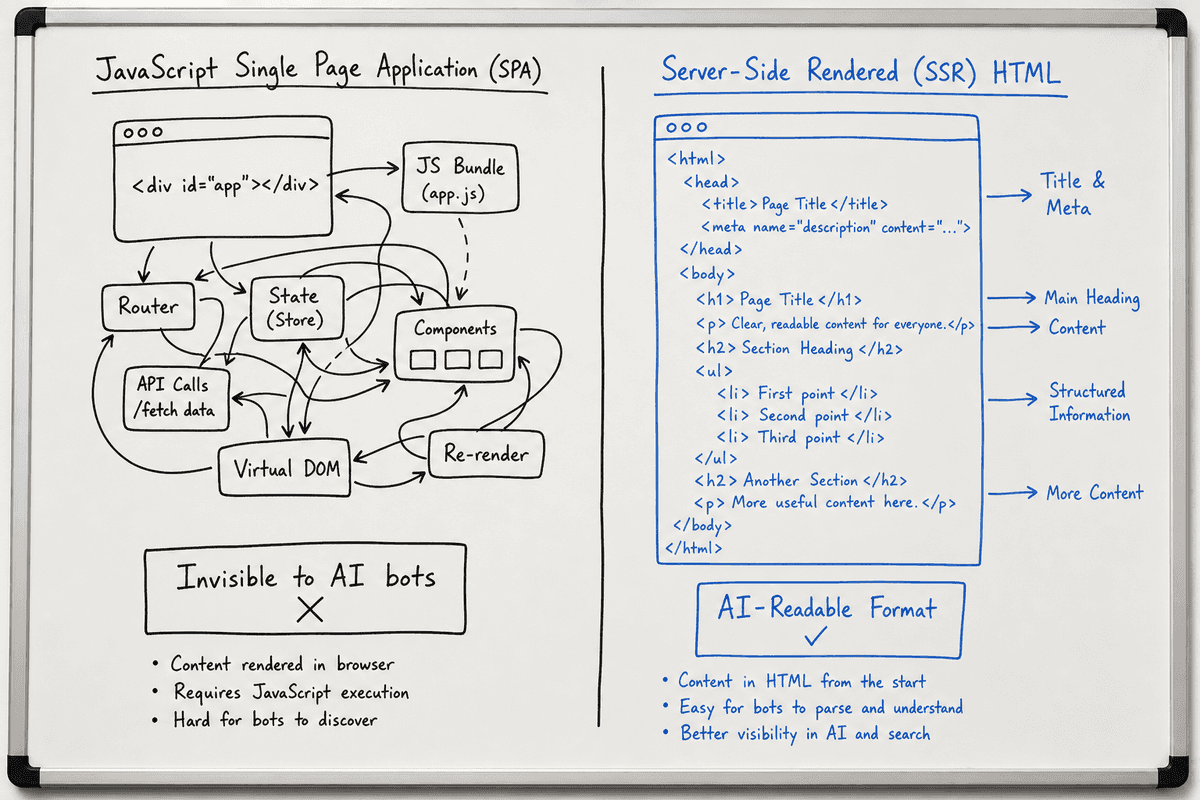 JavaScript Single Page Application (SPA)
<div id="app"></div>
JS Bundle
(app.js)
Router
State
(Store)
Components
API Calls
/fetch data
Virtual DOM
Re-render
Invisible to AI bots
• Content rendered in browser
• Requires JavaScript execution
• Hard for bots to discover
Server-Side Rendered (SSR) HTML
<html>
<head>
<title> Page Title </title>
<meta name="description" content="...">
</head>
<body>
<h1> Page Title </h1>
<p> Clear, readable content for everyone.</p>
<h2> Section Heading </h2>
<ul>
<li> First point </li>
<li> Second point </li>
<li> Third point </li>
</ul>
<h2> Another Section </h2>
<p> More useful content here. </p>
</body>
</html>
Title &
Meta
Main Heading
Content
Structured
Information
More Content
AI-Readable Format
• Content in HTML from the start
• Easy for bots to parse and understand
• Better visibility in AI and search